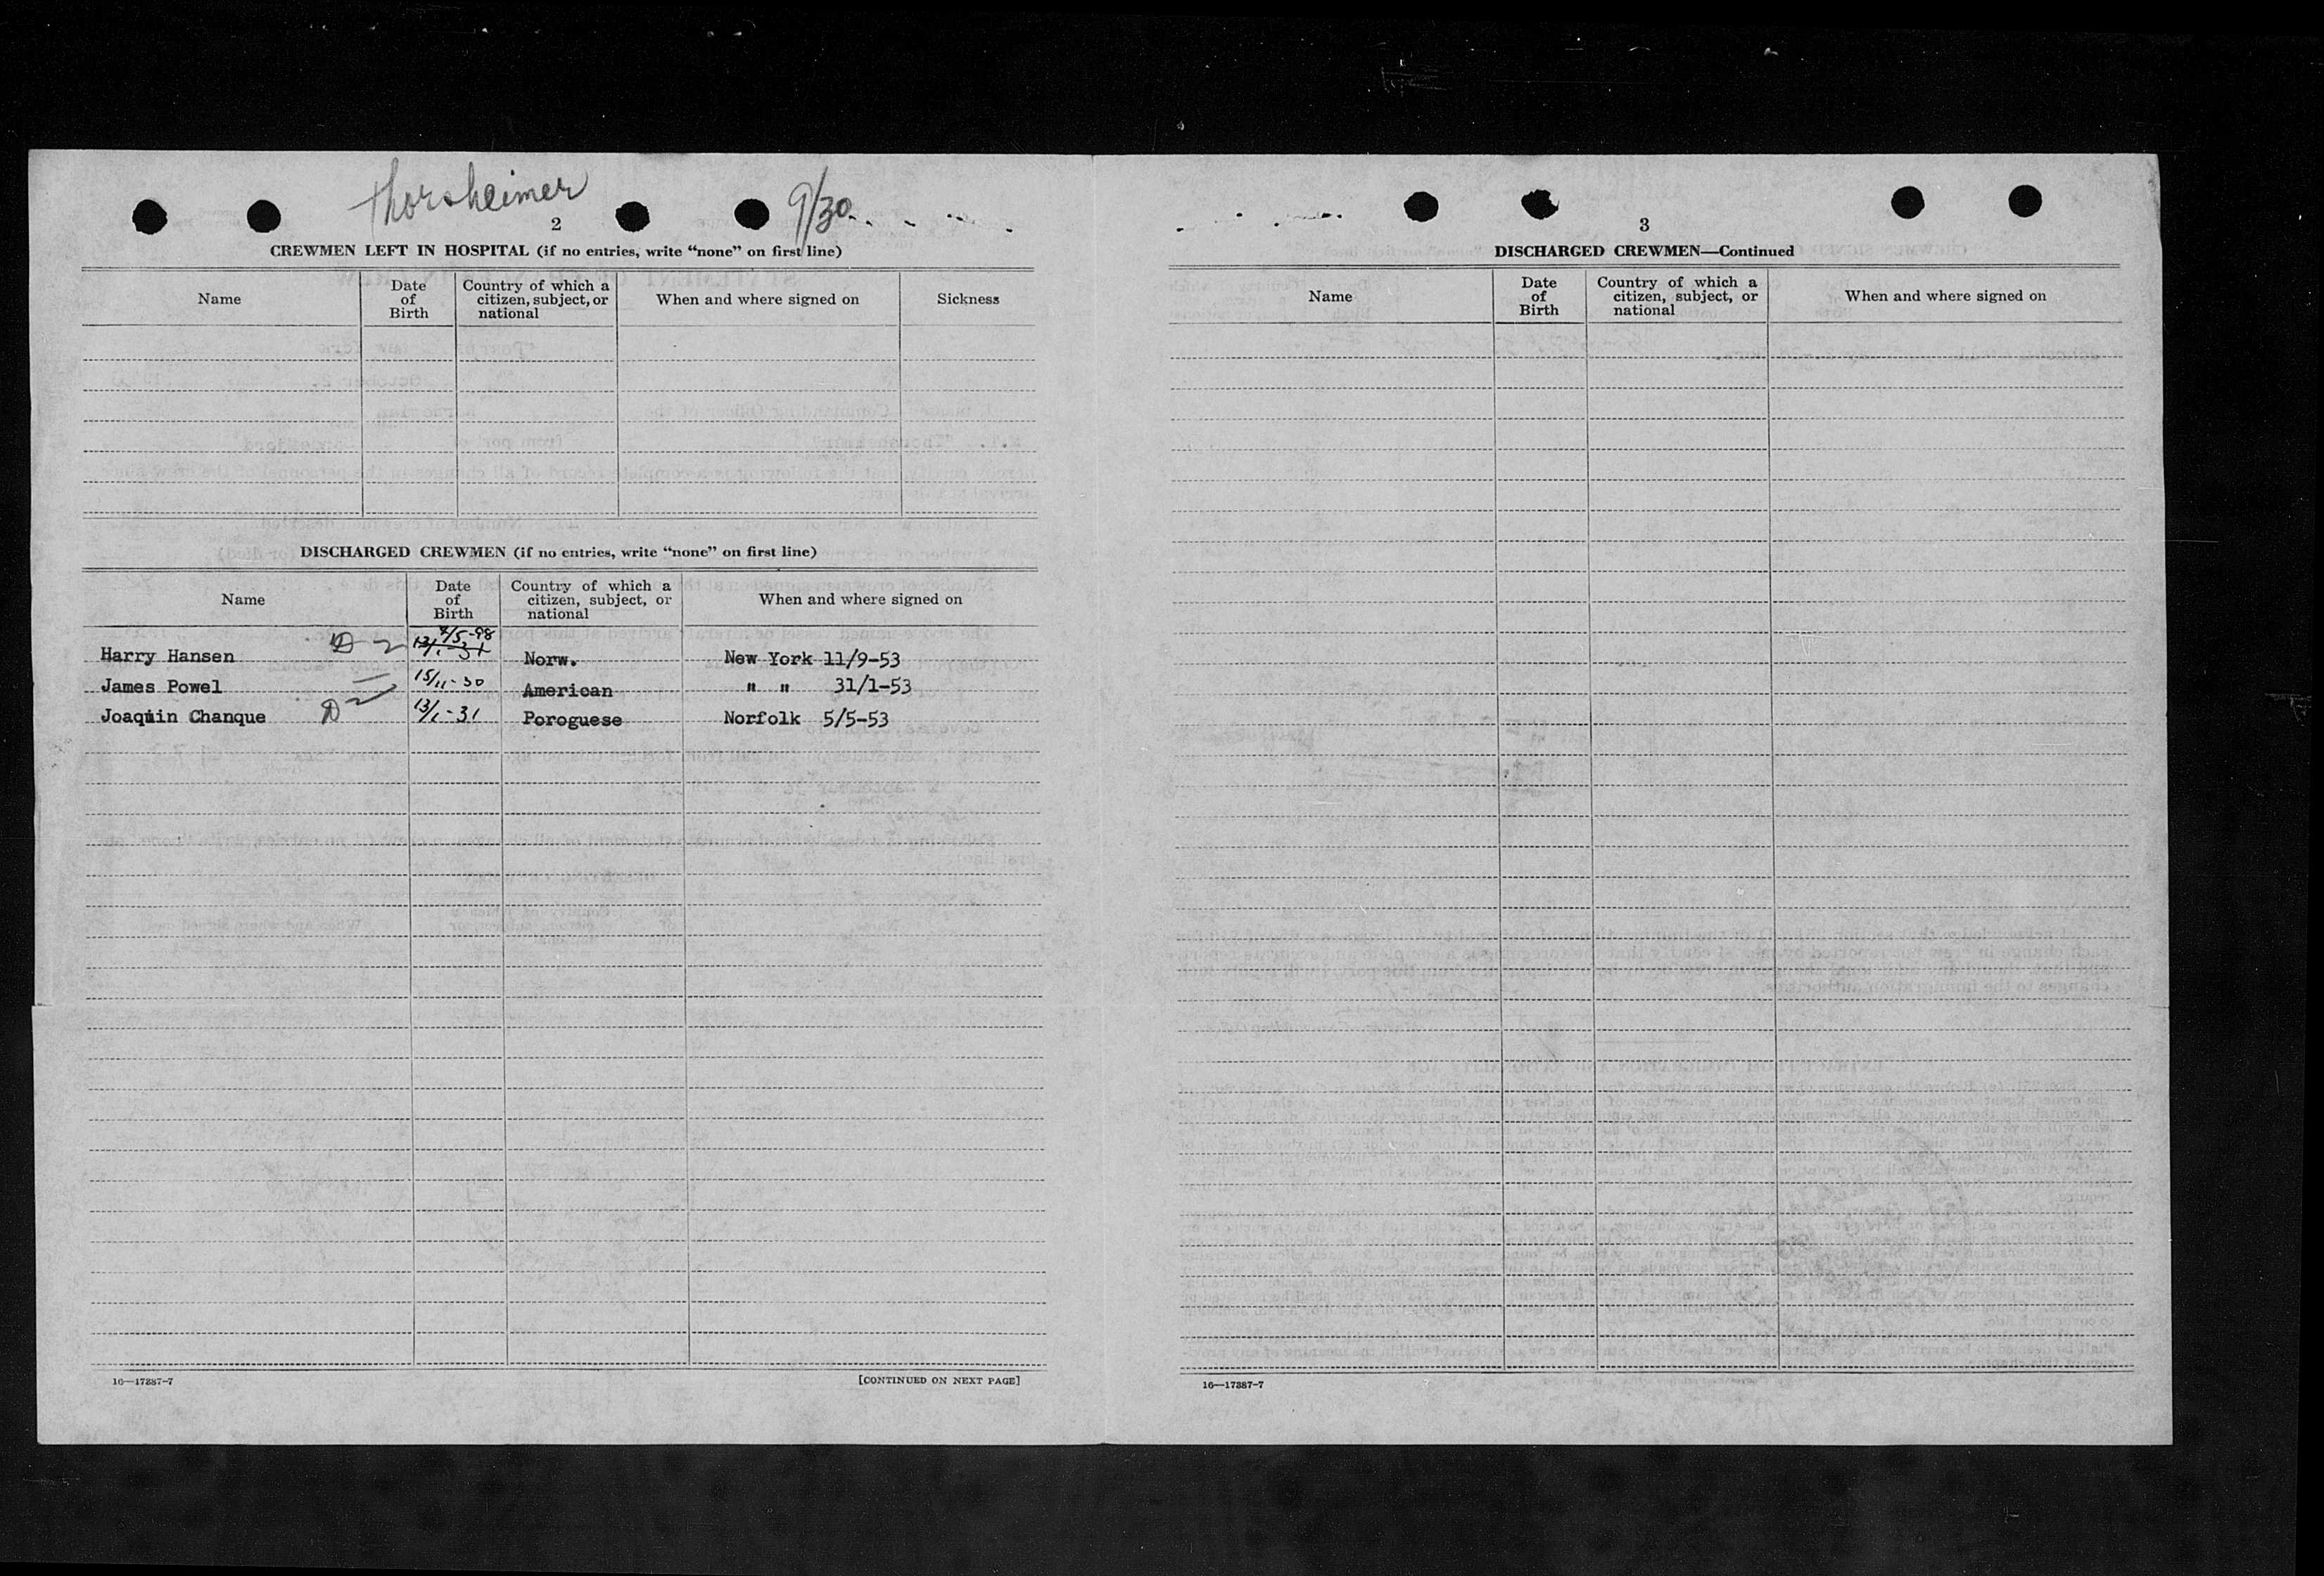 Thorsheimer 9/30
2
CREWMEN LEFT IN HOSPITAL (if no entries, write “none” on first line)
Name
Date of Birth
Country of which a citizen, subject, or national
When and where signed on
Sickness
DISCHARGED CREWMEN (if no entries, write “none” on first line)
Name
Date of Birth
Country of which a citizen, subject, or national
When and where signed on
Harry Hansen D-2 13/1-31 7/5-98 Norw. New York 11/9-53
James Powel 15/11-30 American " " 31/1-53
Joaquin Chanque D-2 13/1-31 Poroguese Norfolk 5/5-53
16—17387-7
[CONTINUED ON NEXT PAGE]
3
DISCHARGED CREWMEN—Continued
Name
Date of Birth
Country of which a citizen, subject, or national
When and where signed on
16—17387-7